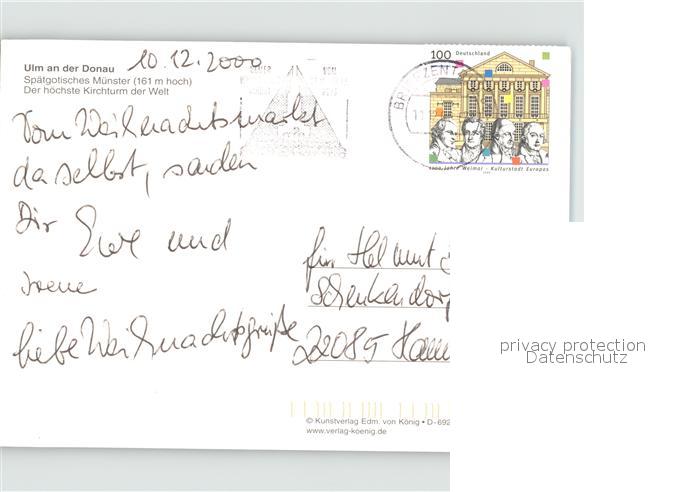 Ulm an der Donau
Spätgotisches Münster (161 m hoch)
Der höchste Kirchturm der Welt
10.12.2000
100 Deutschland
1100 Jahre Weimar - Kulturstadt Europas
BRIEFZENT
Vom Weihnachtsmarkt
daselbst, senden
Dir und
Irene
liebe Weihnachtsgrüße
für Helmut
Schenkendorf
22085 Ham
privacy protection
Datenschutz
© Kunstverlag Edm. von König • D-692
www.verlag-koenig.de